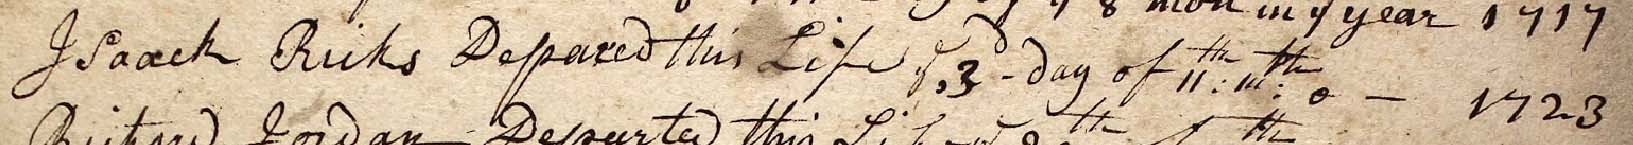 8 mon in y year 1717
Isaack Ricks Depared this Life y 3d day of 11th: mth: o — 1723
Richard Jordan Departed this Life